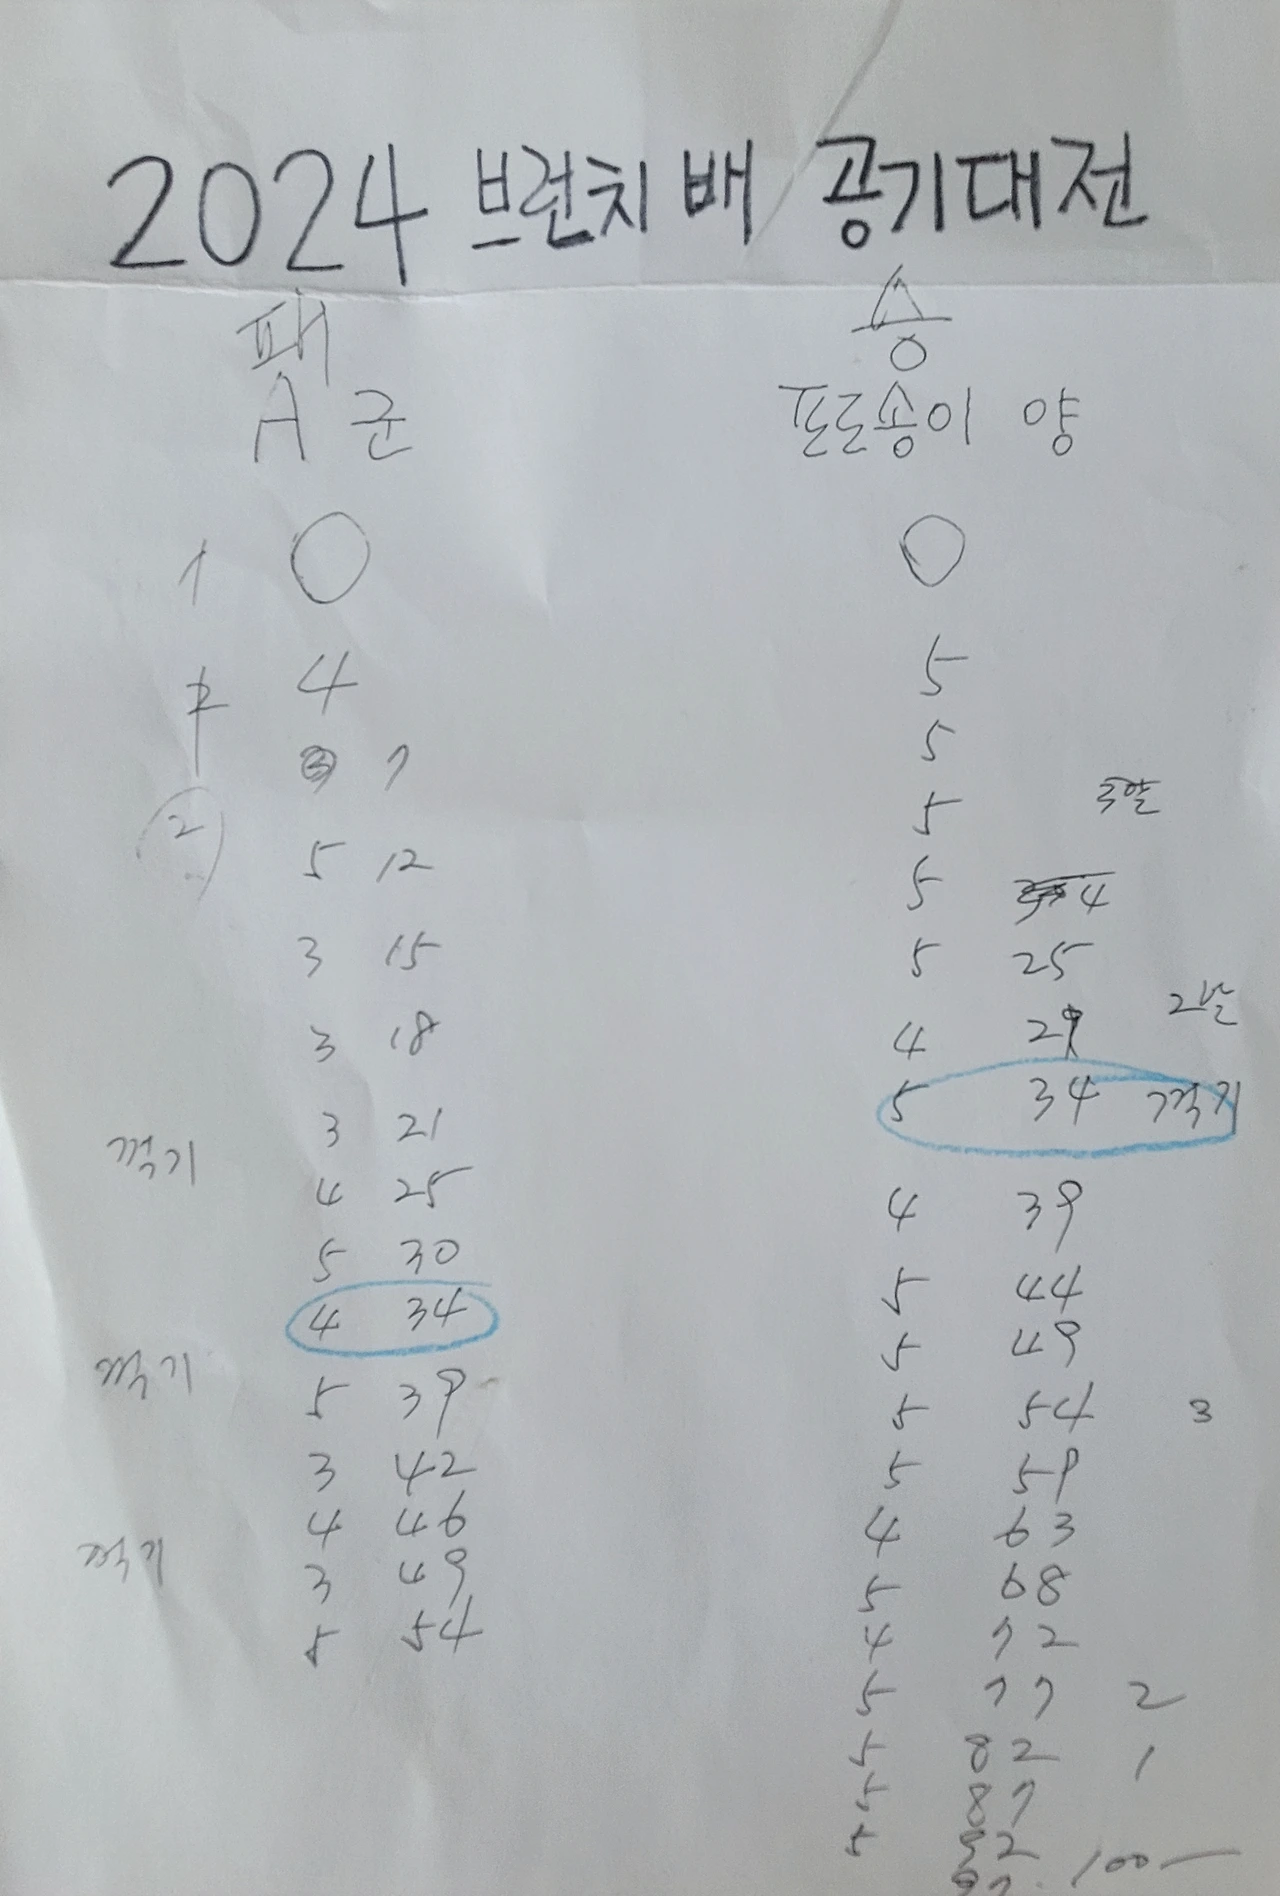 2024 브런치배 공기대전
패 승
A군 프로송이 양
1 0 0
2 4 5
3 7 5
2 5 5
5 12 5 4
3 15 5 25
3 18 4 29 2날
3 21 5 34 꺾기
꺾기 4 25 4 39
5 30 5 44
4 34 5 49
꺾기 5 39 5 54 3
3 42 5 59
4 46 4 63
꺾기 3 49 5 68
5 54 4 72
5 77 2
5 82 1
5 87
5 92 100
97